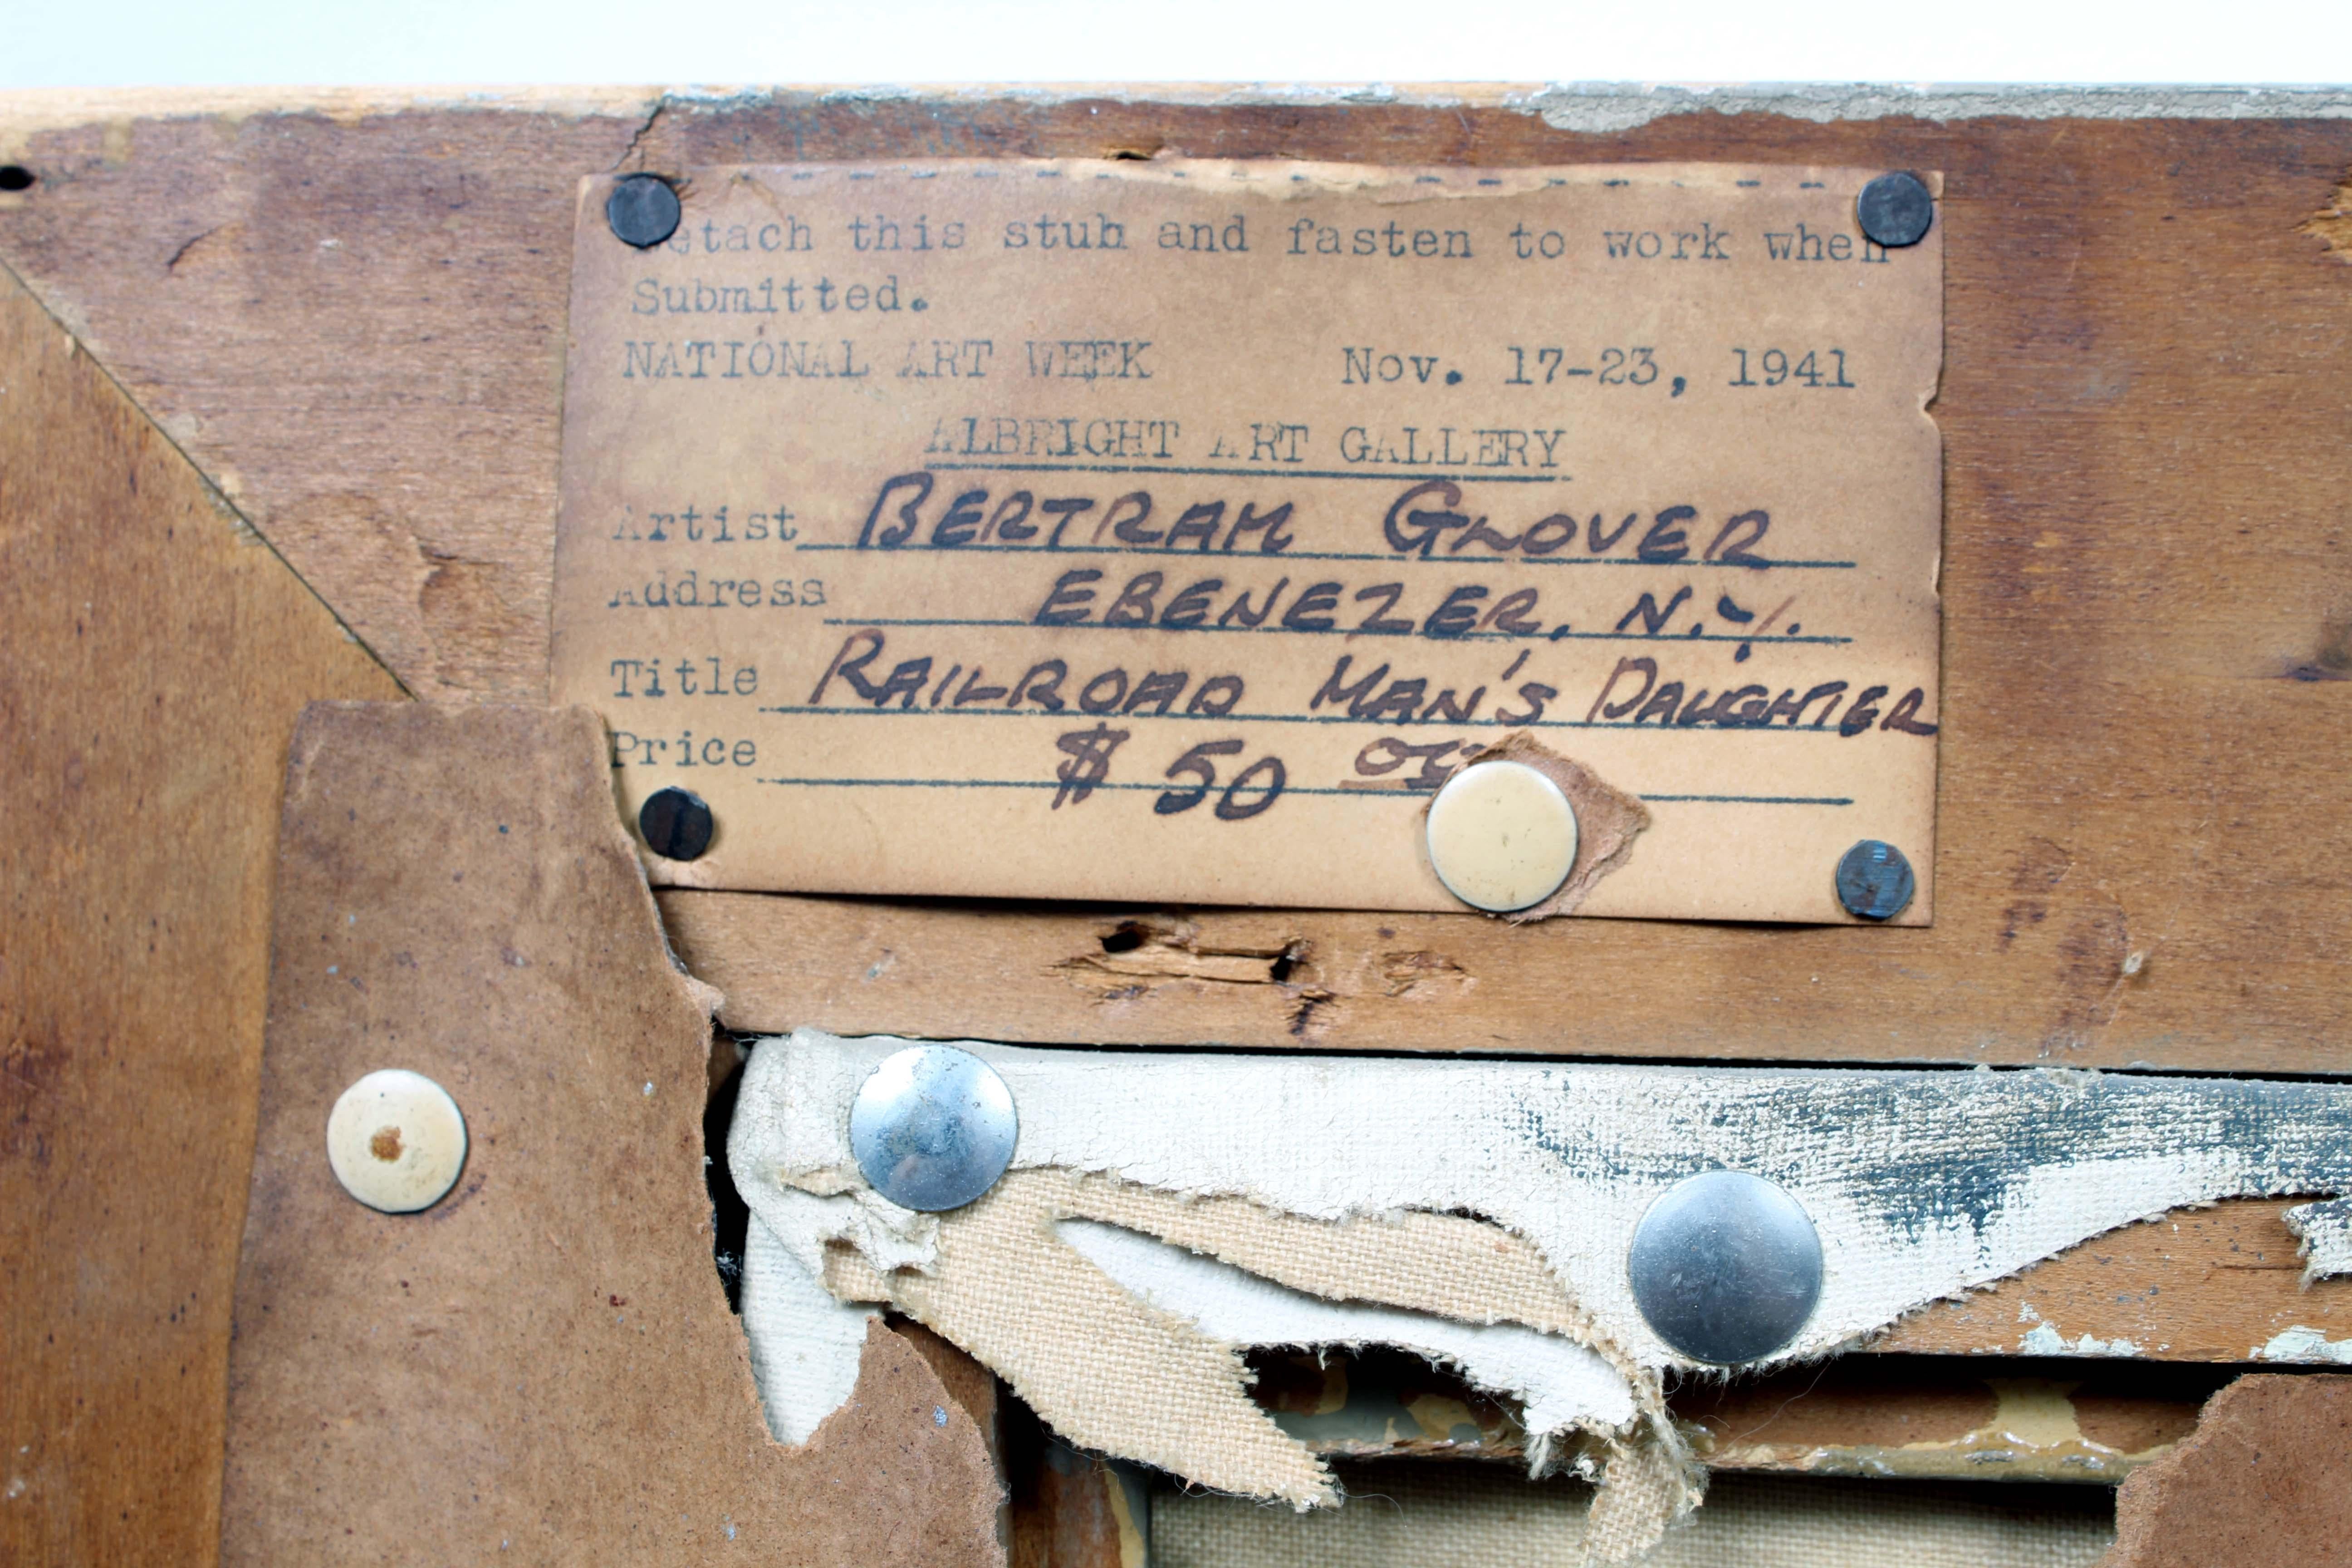 Detach this stub and fasten to work when
Submitted.
NATIONAL ART WEEK Nov. 17-23, 1941
ALBRIGHT ART GALLERY
Artist BERTRAM GLOVER
Address EBENEZER, N.Y.
Title RAILROAD MAN'S DAUGHTER
Price $50